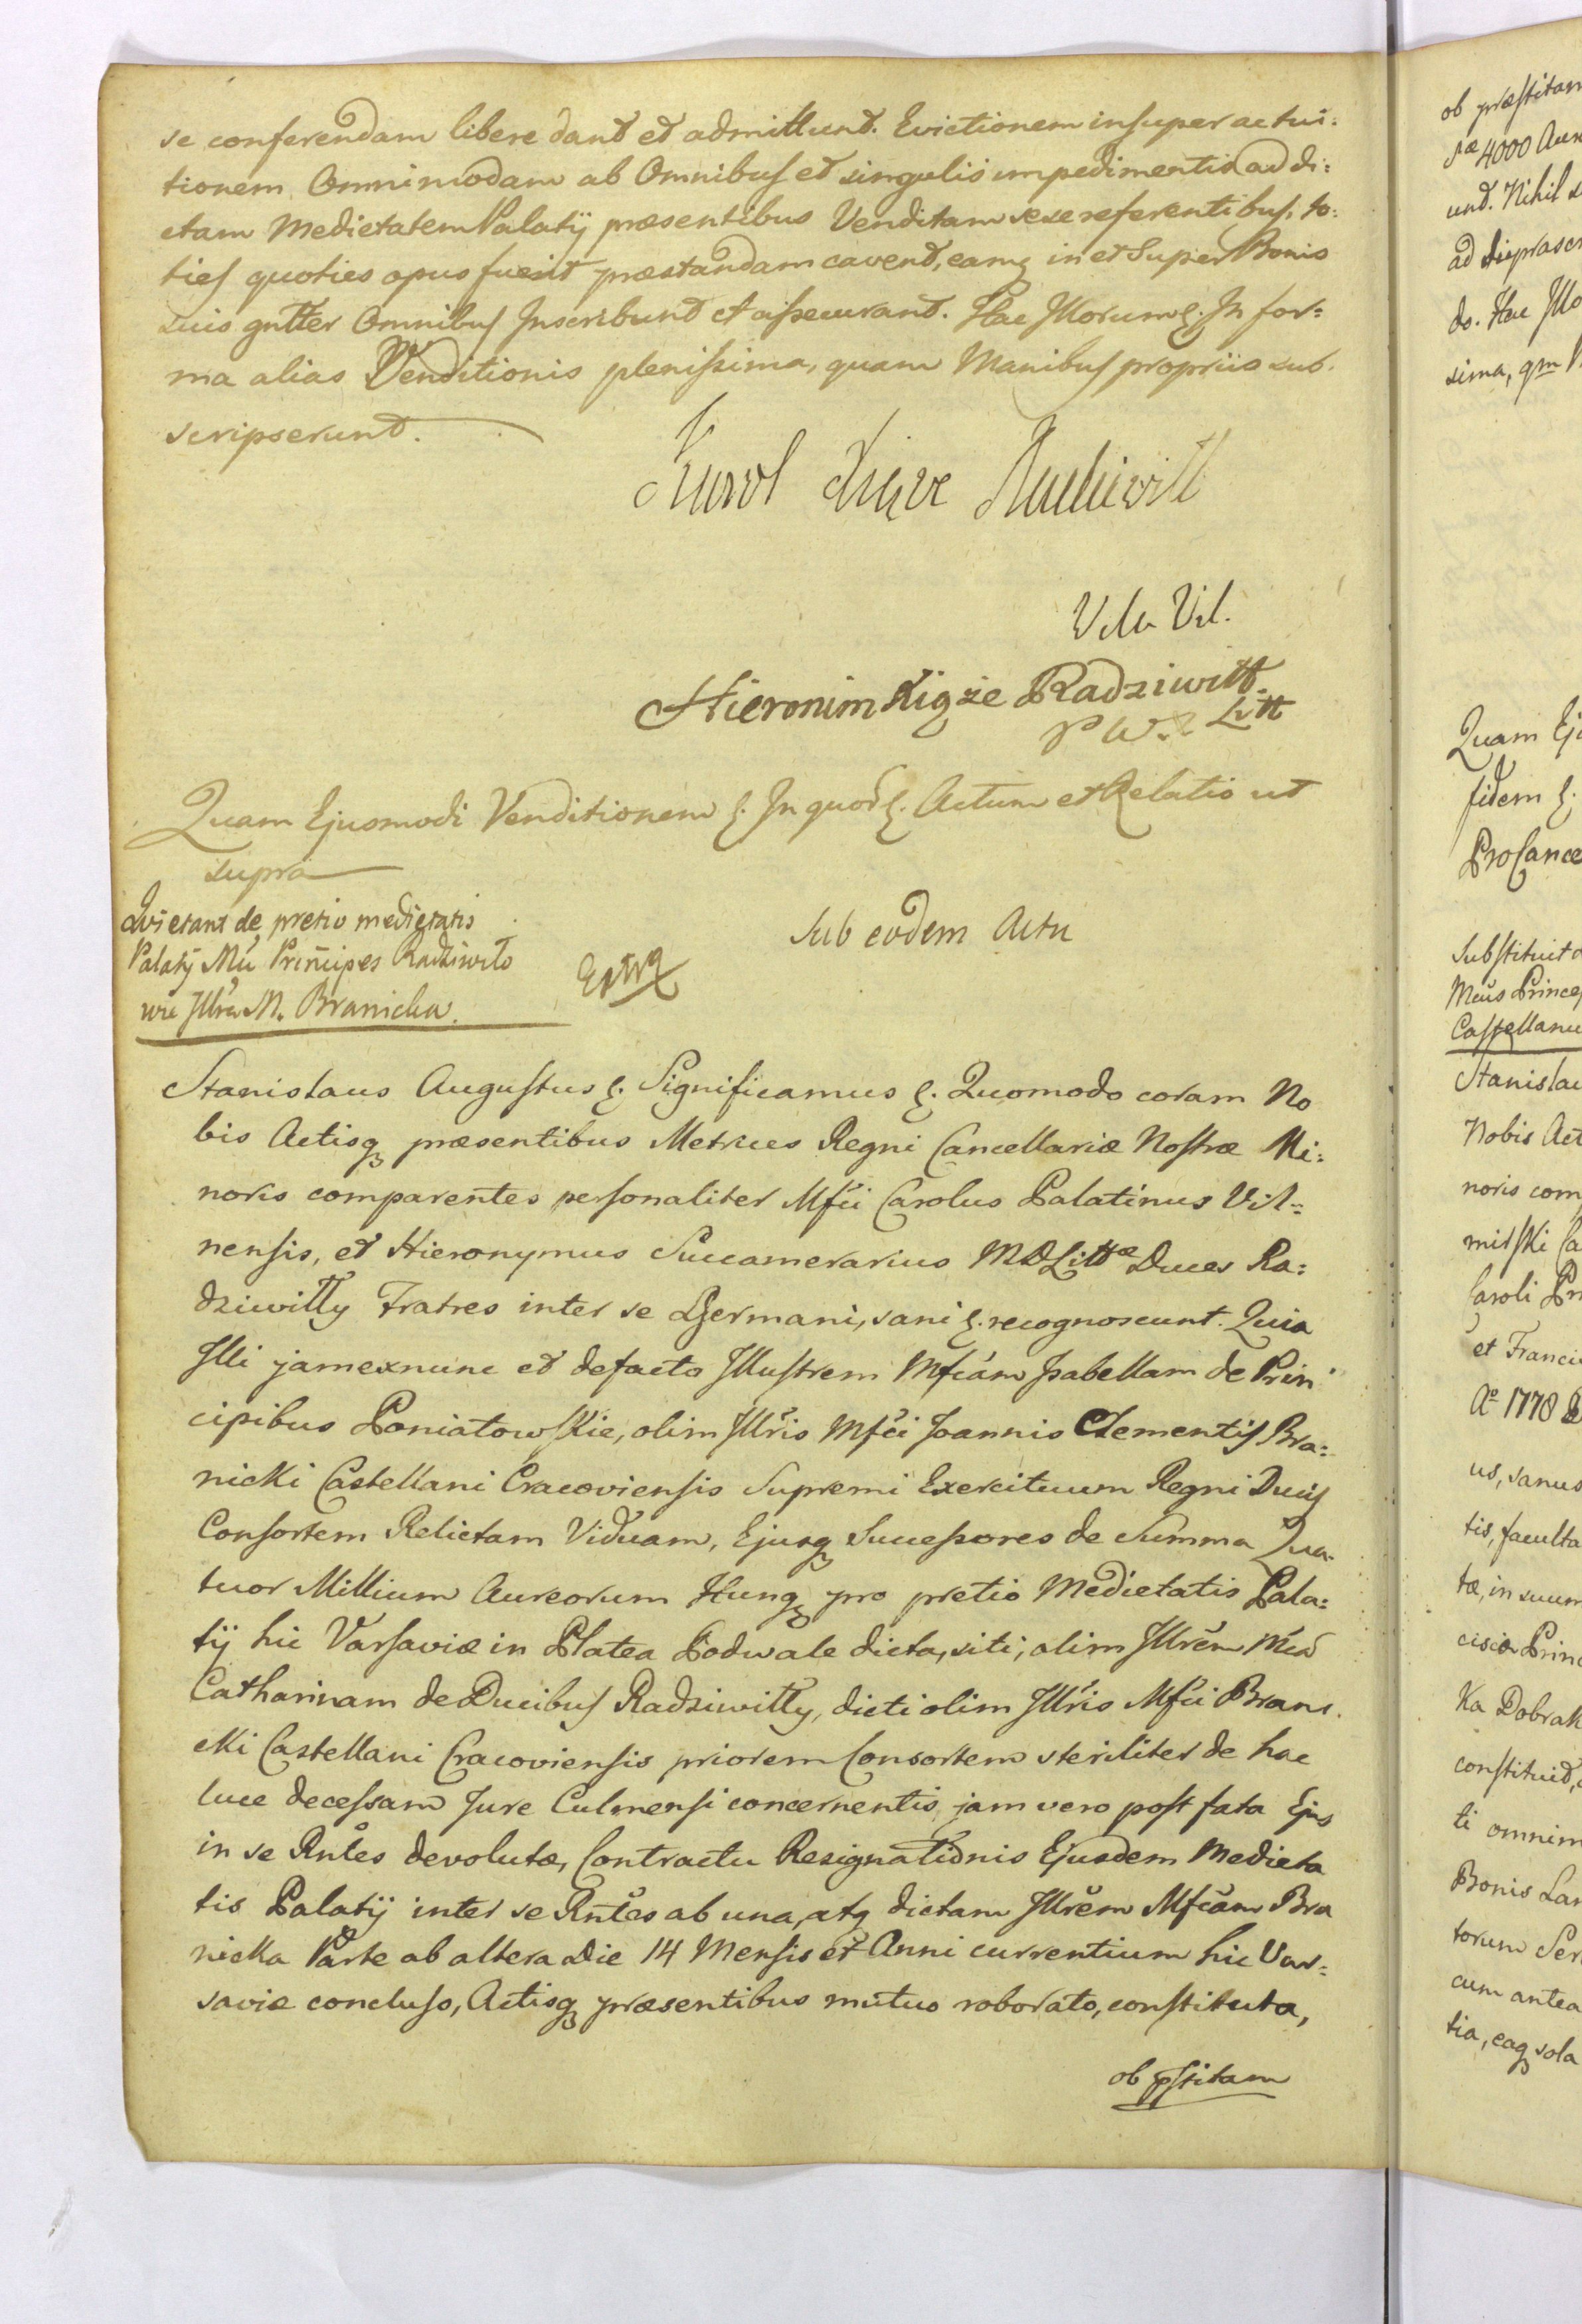 se conferendam libere dant et admittunt. Evictionem insuper ac tui:
tionem Omnimodam ab Omnibus et singulis impedimentis ad di:
ctam Medietatem Palatij præsentibus Venditam sese referentibus, to:
ties quoties opus fuerit præstandam cavent, eamq in et super Bonis
suis gnłter Omnibus Inscribunt et assecurant. Hac Illorum &. In for:
ma alias Venditionis plenissima, quam Manibus propriis sub.
scripserunt.
Karol Xiąże Radziwiłł
Wda Wil.
Hieronim Xiąże Radziwiłł.
P W. X Litt
Quam Ejusmodi Venditionem &. In quor &. Actum et Relatio ut
supra
Quietant de pretio medietatis
Palatij Mci Principes Radziwiło
wie Illrem M. Branicka.
Extra
Sub eodem Actu
Stanislaus Augustus &. Significamus &. Quomodo coram No
bis Actisq præsentibus Metrices Regni Cancellariæ Nostræ Mi:
noris comparentes personaliter Mfci Carolus Palatinus Vil:
nensis, et Hieronymus Succamerarius MDLittæ Duces Ra:
dziwiłły Fratres inter se Germani, sani &. recognoscunt. Quia
Illi jam exnunc et de facto Illustrem Mfcam Isabellam de Prin
cipibus Poniatowskie, olim Illris Mfci Joannis Clementis Bra:
nicki Castellani Cracoviensis Supremi Exercituum Regni Ducis
Consortem Relictam Viduam, Ejusq Successores de Summa Qua.
tuor Millium Aureorum Hung pro pretio Medietatis Pala:
tij hic Varsaviæ in Platea Podwale dicta, siti, olim Illrem Mcam
Catharinam de Ducibus Radziwiłły, dicti olim Illris Mfci Brani.
cki Castellani Cracoviensis priorem Consortem steriliter de hac
luce decessam Jure Culmensi concernentis, jam vero post fata Ejus
in se Rntes devolutæ, Contractu Resignationis Ejusdem Medieta
tis Palatij inter se Rntes ab una, atq dictam Illrem Mfcam Bra
nicka Parte ab altera Die 14 Mensis et Anni currentium hic Var:
saviæ concluso, Actisq præsentibus mutuo roborato, constituta,
ob pstitam
ob præstitam
4000
unt. Nihil
do. Hac Illo
sima, qm
Quam Ej
fidem &.
ProCance
Substituit
Mcus Princeps
Castellanu
Stanislau
Nobis Act
noris com
Caroli Pri
et Franci
Ao 1778
us, sanus
tis, faculta
tæ, in suum
ka Dobrak
constituit,
ti omnim
Bonis Lan
torum Ser
cum antea
tia, eaq sola